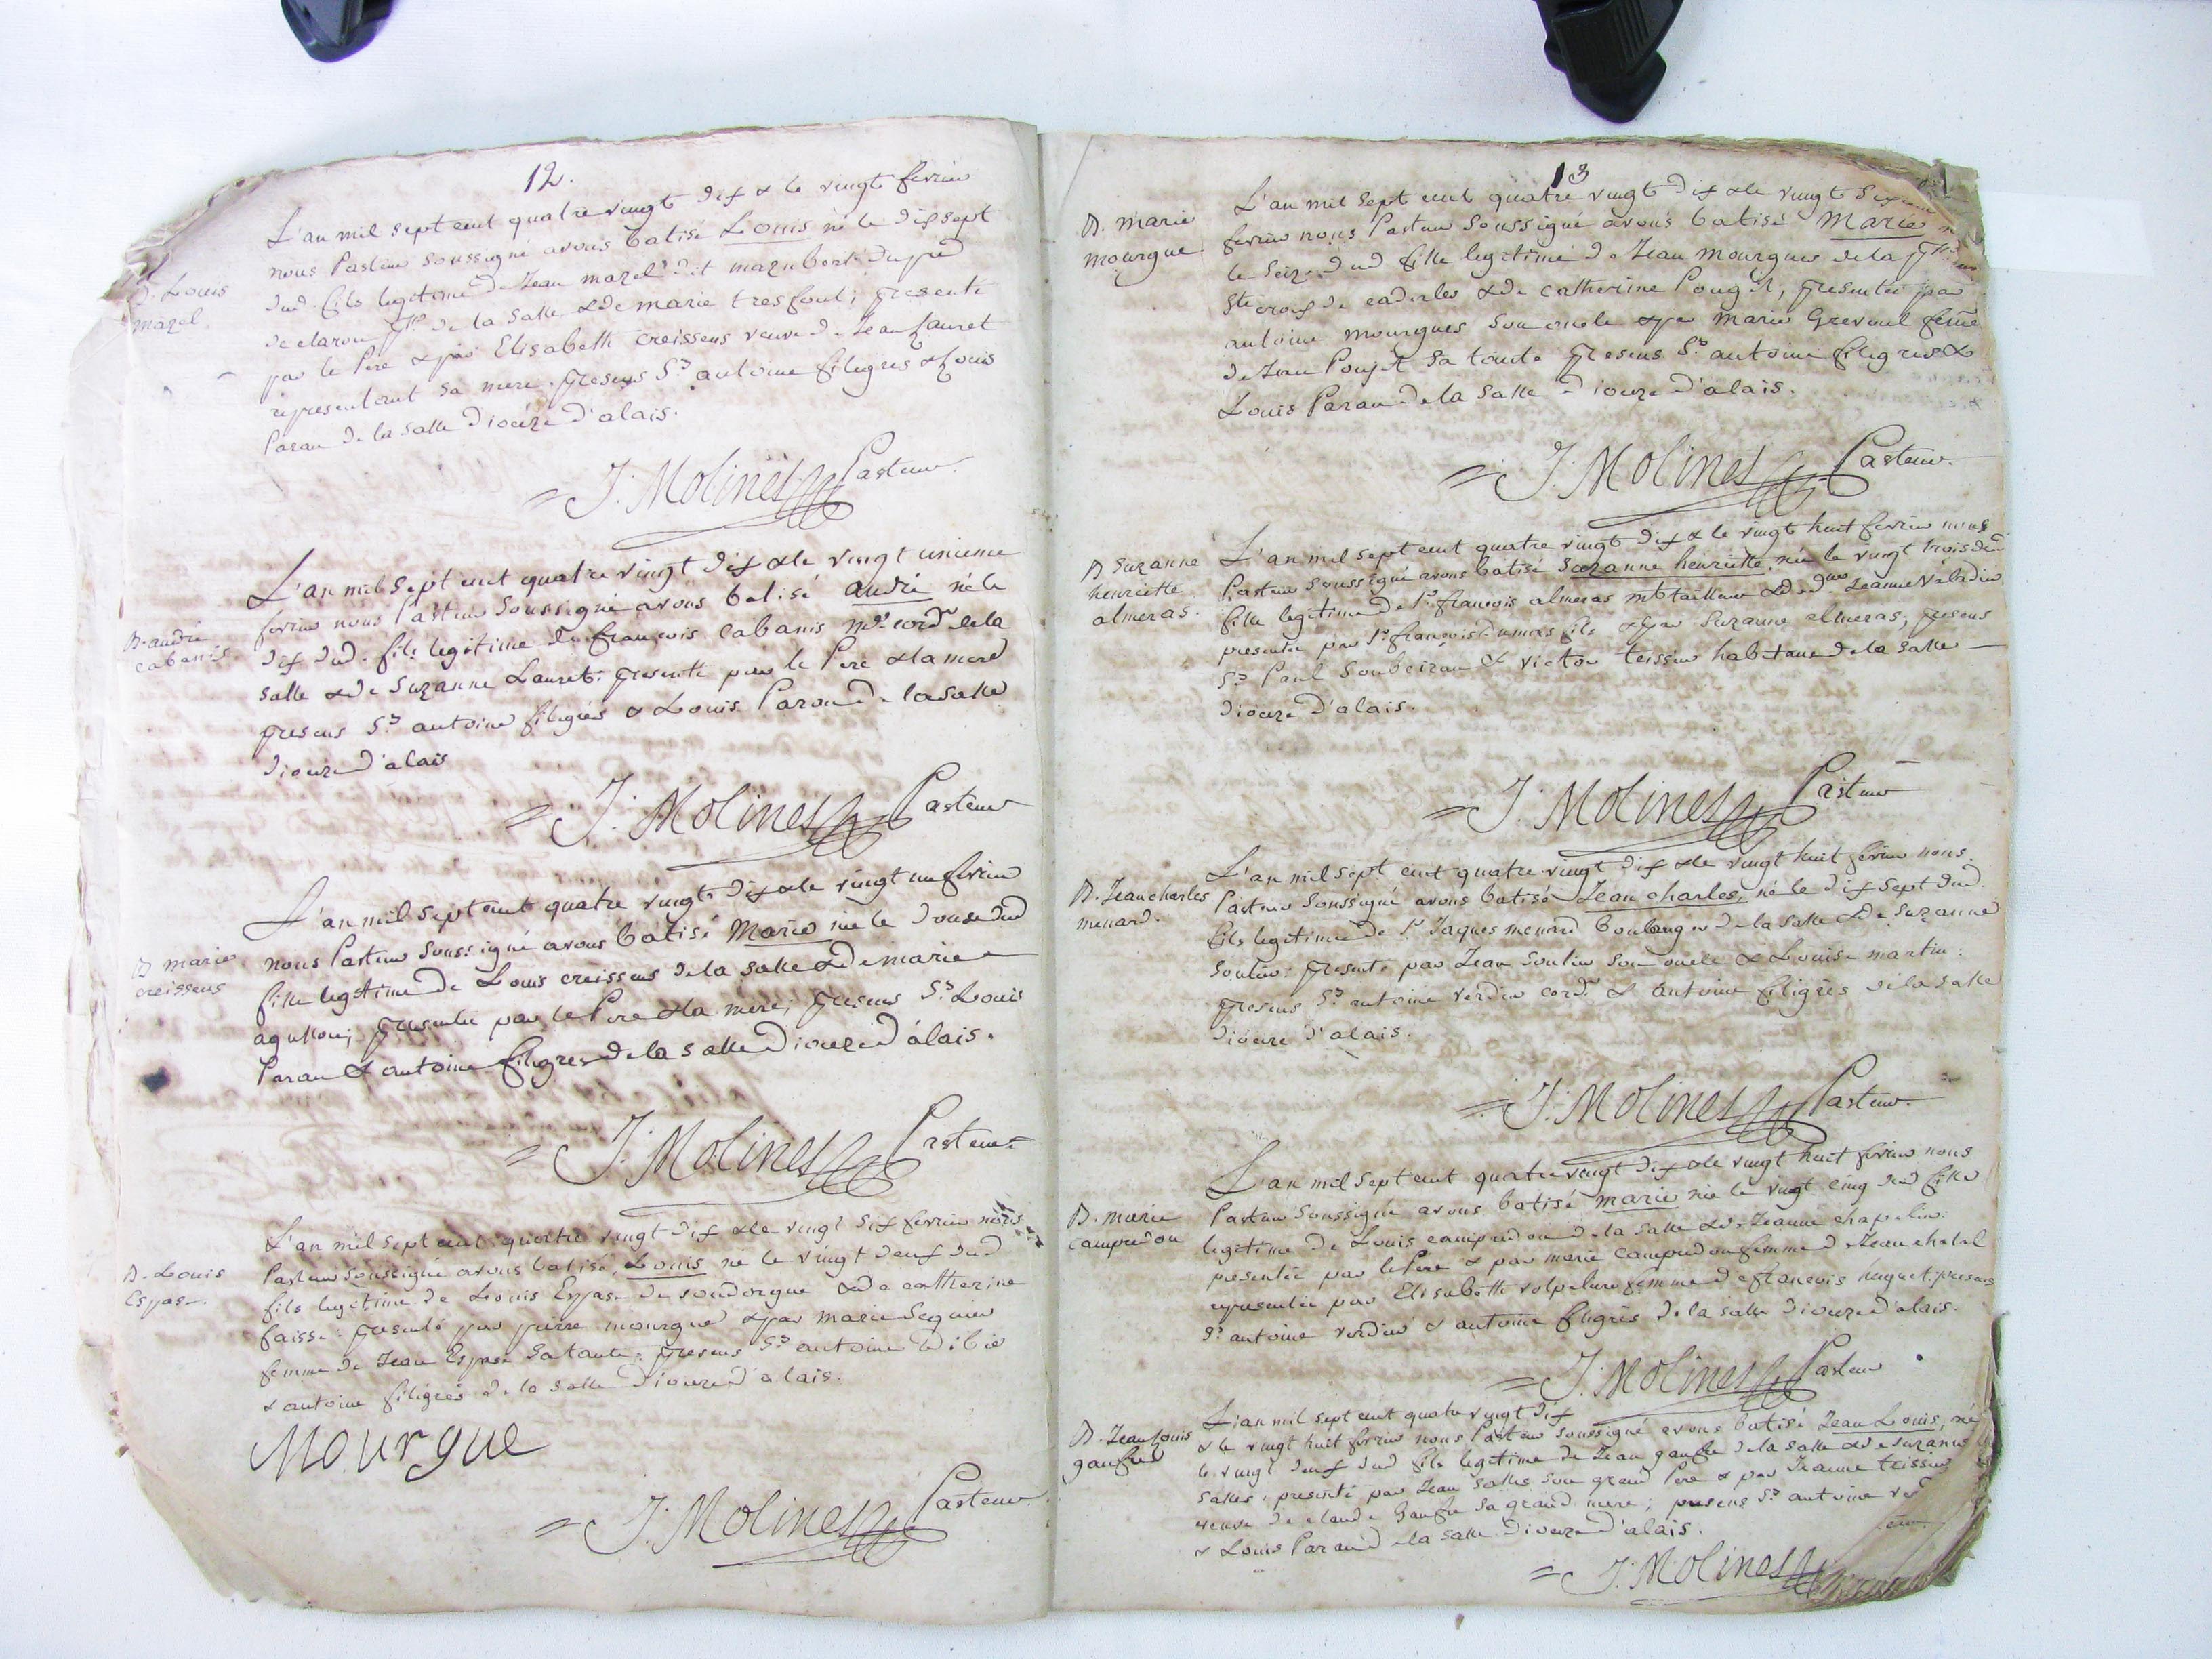 12.
L'an mil sept cent quatre vingt dix & le vingt fevrier
nous Pasteur soussigné avons batisé Louis né le dix sept
B. Louis
mazel.
dud. fils legitime de Jean mazel dit mazubert du
de la Salle & de marie tresfont; presenté
par le Pere & par Elisabeth creissens veuve de Jean Lauret
representant sa mere. presens Srs antoine filigres & Louis
Paran de la Salle dioceze d'alais.
= J. Molines Pasteur.
L'an mil sept cent quatre vingt dix & le vingt unieme
fevrier nous Pasteur soussigné avons batisé andré né le
B. andré
cabanis.
dix dud. fils legitime de françois cabanis mtre cordr de la
salle & de Suzanne Lauret: presenté par le Pere & la mere
presens Srs antoine filigres & Louis Paran de la Salle
dioceze d'alais
= J. Molines Pasteur
L'an mil sept cent quatre vingt dix & le vingt un fevrier
nous Pasteur soussigné avons batisé Marie née le douze dud
B marie
creissens
fille legitime de Louis creissens de la salle & de marie
agulhon; presentée par le Pere & la mere; presens Srs Louis
Paran & antoine filigres de la salle dioceze d'alais.
= J. Molines Pasteur
L'an mil sept cent quatre vingt dix & le vingt six fevrier nous
B. Louis
Espase.
Pasteur soussigné avons batisé, Louis né le vingt deux dud
fils legitime de Louis Espase de soudorgue & de catherine
faisse: presenté par pierre mourgue & par marie Seguier
femme de Jean Espase sa tante: presens Srs antoine
& antoine filigres de la salle dioceze d'alais.
Mourgue
= J. Molines Pasteur
13
B. marie
mourgue.
L'an mil sept cent quatre vingt dix & le vingt
fevrier nous Pasteur soussigné avons batisé Marie
le seize dud fille legitime de Jean mourgues de la
Ste croix de caderles & de catherine Pouget, presentée par
antoine mourgues son oncle & par marie Grevoul feme
de Jean Pouget sa tante presens Srs antoine filigres &
Louis Paran de la Salle dioceze d'alais.
= J. Molines Pasteur.
B Suzanne
henriette
almeras.
L'an mil sept cent quatre vingt dix & le vingt huit fevrier nous
Pasteur soussigné avons batisé Suzanne henriette, née le vingt trois dud
fille legitime de Sr françois almeras md tailleur & de dlle Jeanne Valadier,
presentée par Sr françois Dumas fils & par Suzanne almeras; presens
Srs Paul Soubeiran & victor teissier habitans de la Salle
dioceze d'alais.
= J. Molines Pasteur
B. Jean charles
menard.
L'an mil sept cent quatre vingt dix & le vingt huit fevrier nous
Pasteur soussigné avons batisé Jean charles, né le dix sept dud.
fils legitime de Sr Jaques menard boulanger de la Salle & de Suzanne
Soulier: presenté par Jean Soulier son oncle & Louise martin:
presens Srs antoine verdier cordr & antoine filigres de la Salle
dioceze d'alais.
= J. Molines Pasteur.
B. marie
campredon
L'an mil sept cent quatre vingt dix & le vingt huit fevrier nous
Pasteur soussigné avons batisé marie née le vingt cinq dud fille
legitime de Louis campredon de la Salle & de Jeanne chapelier:
presentée par le Pere & par marie campredon femme de Jean chabal
representée par Elisabeth volpeliere femme de françois huguet. presens
Srs antoine verdier & antoine filigres de la Salle dioceze d'alais.
= J. Molines Pasteur
B. Jean Louis
gaufre
L'an mil sept cent quatre vingt dix
& le vingt huit fevrier nous Pasteur soussigné avons batisé Jean Louis, né
le vingt deux dud fils legitime de Jean gaufre de la Salle & de Suzanne
Salles, presenté par Jean Salles son grand Pere & par Jeanne teissier
veuve de claude Gaufre sa grand mere; presens Srs antoine
& Louis Paran de la Salle dioceze d'alais.
= J. Molines